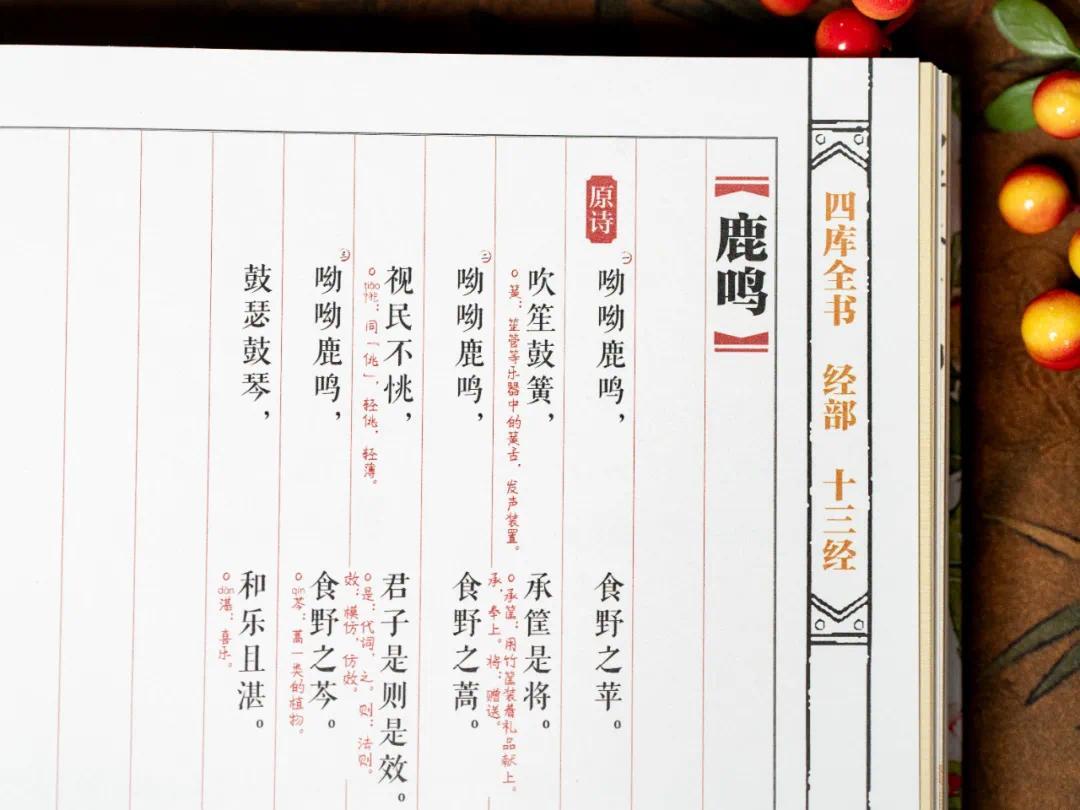 四库全书 经部 十三经
鹿鸣
原诗
㊀呦呦鹿鸣，食野之苹。
吹笙鼓簧，承筐是将。
簧：笙管等乐器中的簧舌，发声装置。
承筐：用竹筐装着礼品献上。
承，奉上。将：赠送。
㊁呦呦鹿鸣，食野之蒿。
视民不恌，君子是则是效。
tiāo恌：同「佻」，轻佻，轻薄。
是：代词，之。则：法则。
效：模仿，仿效。
㊂呦呦鹿鸣，食野之芩。
qín芩：蒿一类的植物。
鼓瑟鼓琴，和乐且湛。
dān湛：喜乐。